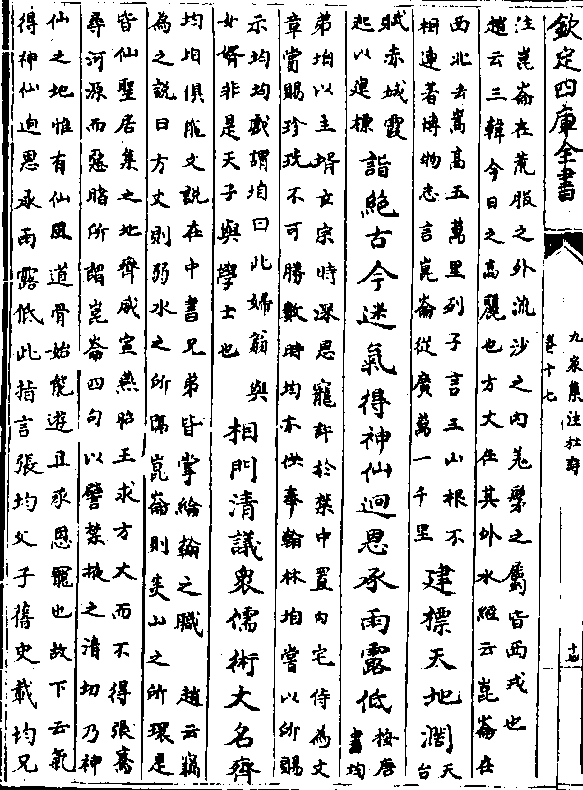 欽定四庫全書
九家集注杜詩
卷十七
十七
注崑崙在荒服之外流沙之內羌髳之屬皆西戎也
趙云三韓今日之高麗也方丈在其外水經云崑崙在
西北去嵩高五萬里列子言五山根不
相連著博物志言崑崙從廣萬一千里
建標天地濶
天台
賦赤城霞
起以建標
詣絶古今迷氣得神仙迥恩承雨露低
按唐
書均
弟垍以主壻玄宗時深恩寵許於禁中置内宅侍為文
章嘗賜珍玩不可勝數時均亦供奉翰林垍嘗以所賜
示均均戲謂垍曰此婦翁與
女婿非是天子與學士也
相門清議衆儒術大名齊
均垍俱能文說在中書兄弟皆掌綸翰之職
趙云竊
為之說曰方丈則弱水之所隔崑崙則炎山之所環是
皆仙聖居集之地齊威宣燕昭王求方丈而不得張騫
尋河源而惡睹所謂崑崙四句以譬禁掖之清切乃神
仙之地惟有仙風道骨始能遊且承恩寵也故下云氣
得神仙迥恩承雨露低此指言張均父子舊史載均兄